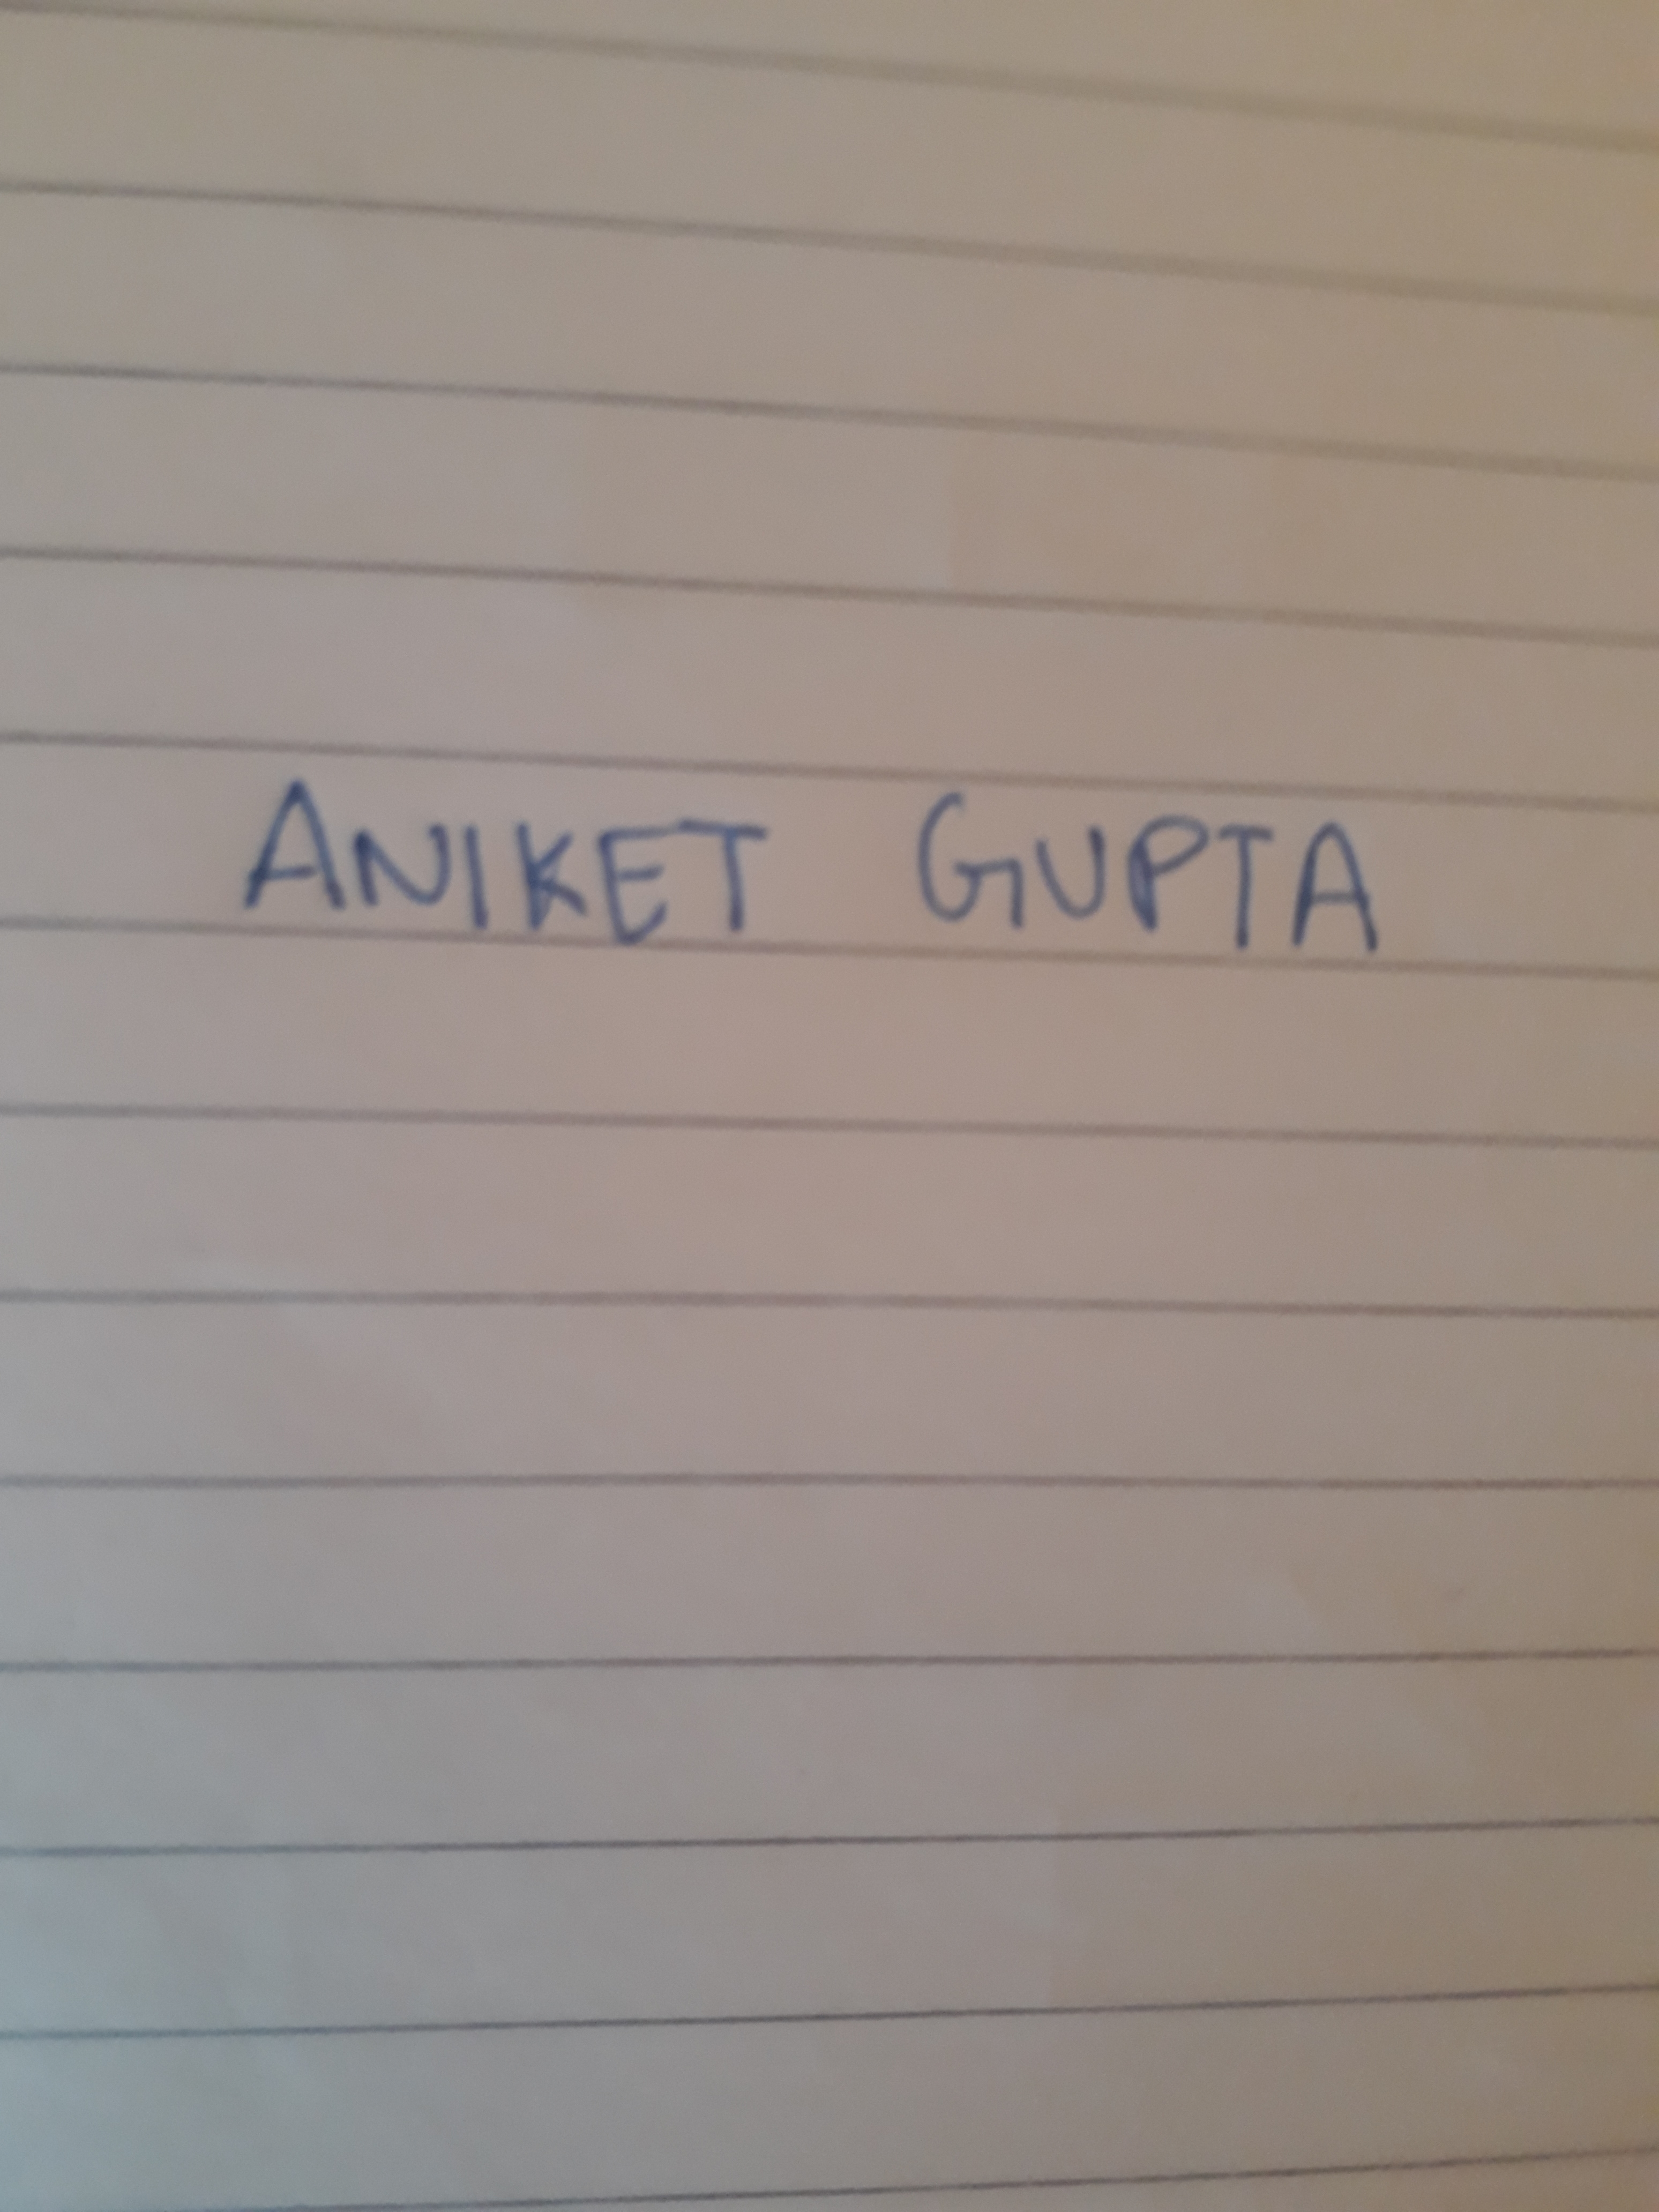 ANIKET GUPTA